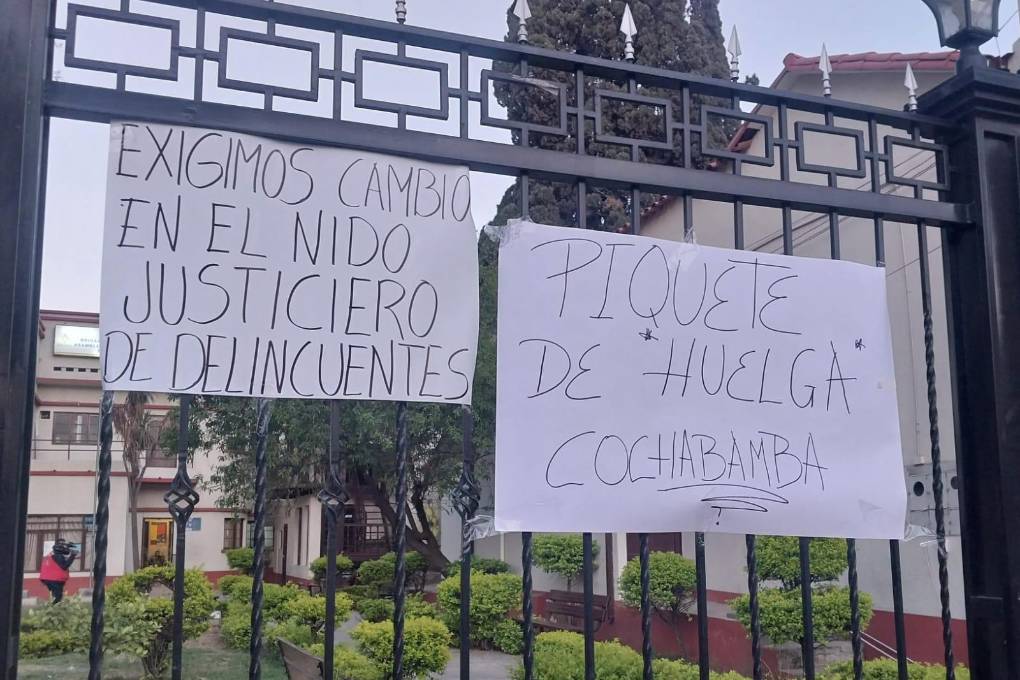 EXIGIMOS CAMBIO
EN EL NIDO
JUSTICIERO
DE DELINCUENTES
PIQUETE
DE "HUELGA"
COCHABAMBA